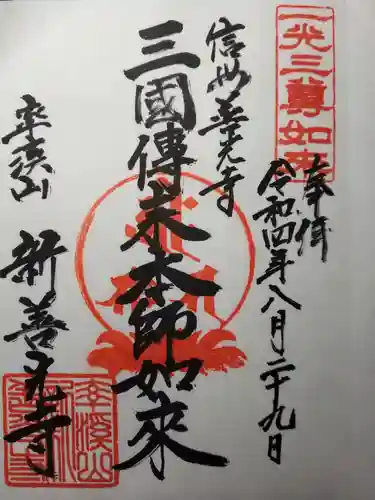 一光三尊如来
奉拝
令和四年八月二十九日
信州善光寺
三國傳来本師如來
率溪山
新善光寺
率溪山